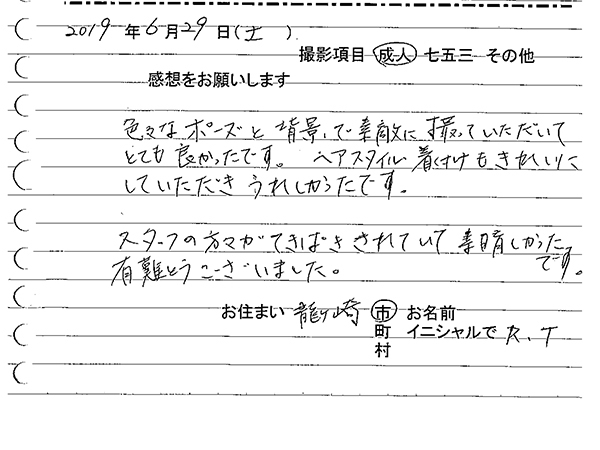 2019年6月29日(土)
撮影項目 成人 七五三 その他
感想をお願いします
色々なポーズと背景で素敵に撮っていただいて
とても良かったです。ヘアスタイル着付けもきれいに
していただきうれしかったです。
スタッフの方々がてきぱきされていて素晴しかった
です。
有難とうございました。
お住まい 龍ヶ崎 市 お名前
町 イニシャルで R.T
村